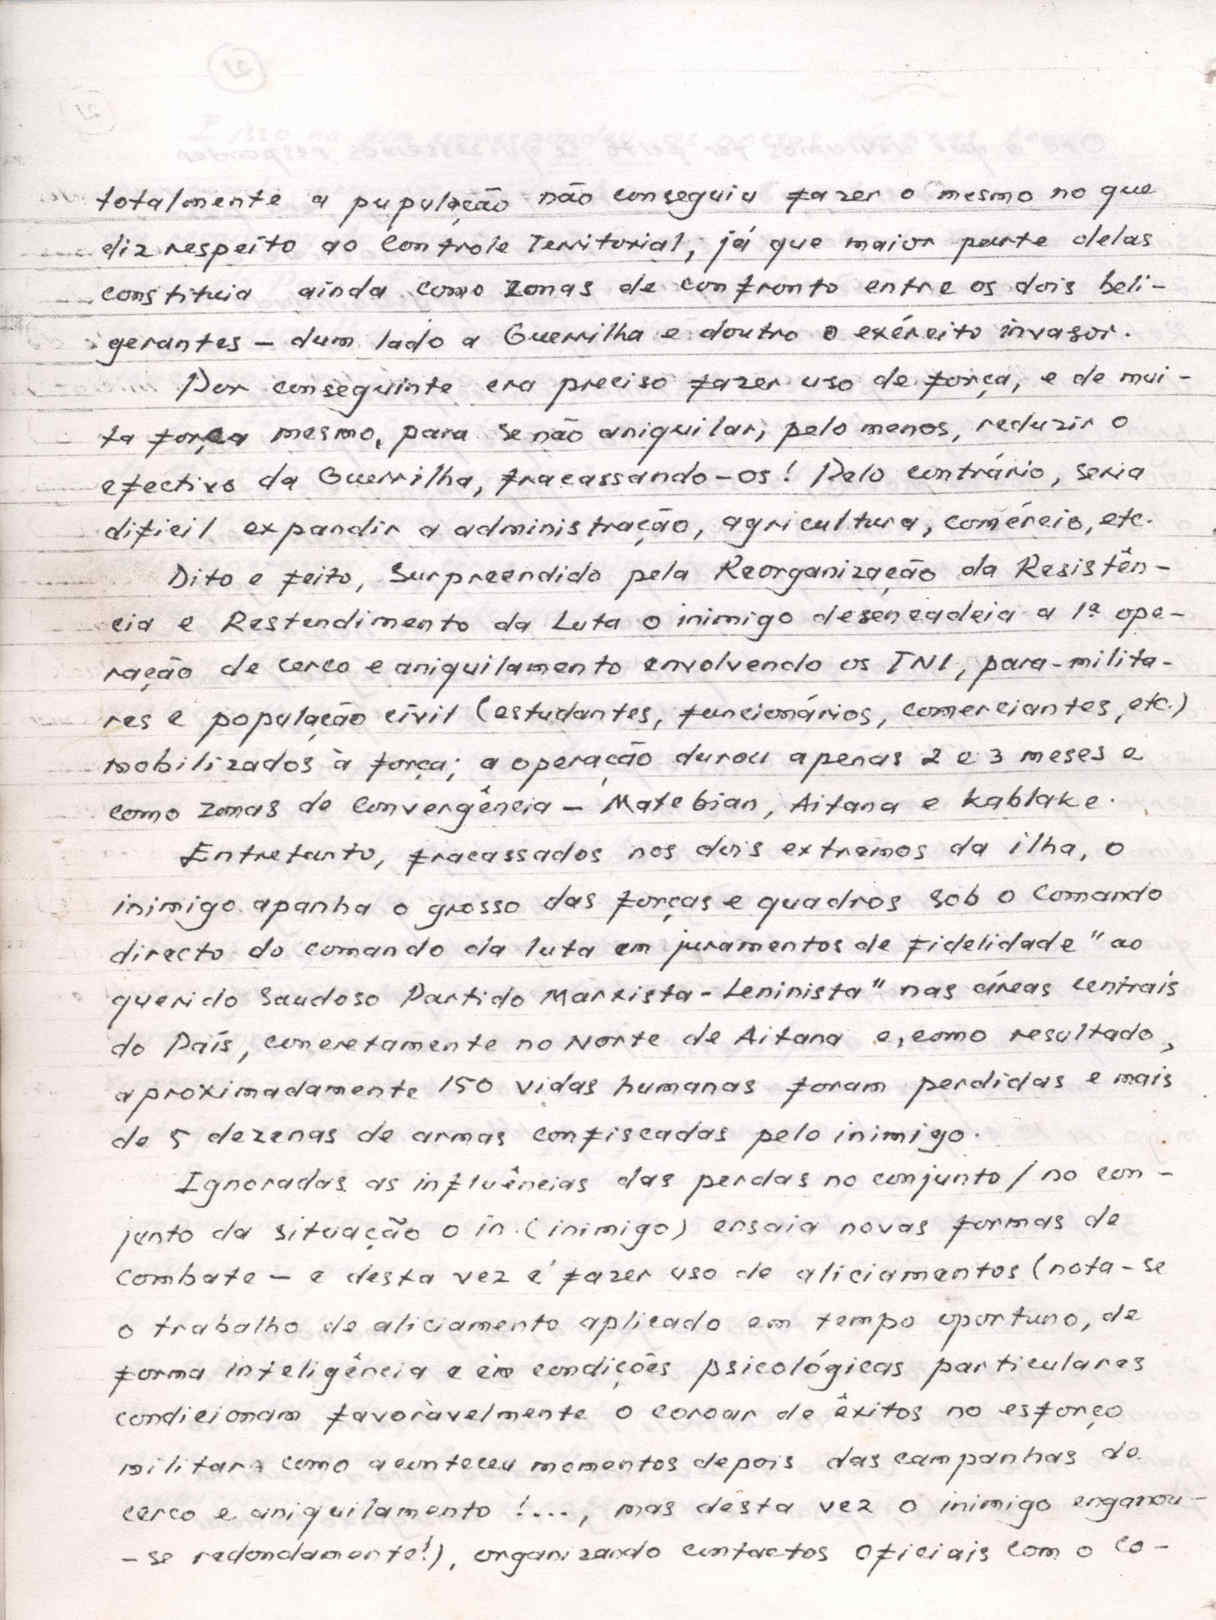 totalmente a pupulação não conseguiu fazer o mesmo no que
diz respeito ao Controle Territorial, já que maior parte delas
constituia ainda como zonas de confronto entre os dois beli-
gerantes - dum lado a Guerrilha e doutro o exército invasor.
Por conseguinte era preciso fazer uso de força, e de mui-
ta força mesmo, para se não aniquilar, pelo menos, reduzir o
efectivo da Guerrilha, fracassando-os! Pelo contrário, seria
dificil expandir a administração, agricultura, comércio, etc.
Dito e feito, Surpreendido pela Reorganização da Resistên-
cia e Restendimento da Luta o inimigo desencadeia a 1ª ope-
ração de cerco e aniquilamento envolvendo os TNI, para-milita-
res e população civil (estudantes, funcionários, comerciantes, etc.)
mobilizados à força; a operação durou apenas 2 e 3 meses e
como zonas de convergência - Matebian, Aitana e Kablake.
Entretanto, fracassados nos dois extremos da ilha, o
inimigo apanha o grosso das forças e quadros sob o Comando
directo do comando da luta em juramentos de fidelidade "ao
querido Saudoso Partido Marxista-Leninista" nas áreas centrais
do País, concretamente no Norte de Aitana e, como resultado,
aproximadamente 150 vidas humanas foram perdidas e mais
de 5 dezenas de armas confiscadas pelo inimigo.
Ignoradas as influências das perdas no conjunto / no con-
junto da situação o in. (inimigo) ensaia novas formas de
combate - e desta vez é fazer uso de aliciamentos (nota-se
o trabalho de aliciamento aplicado em tempo oportuno, de
forma inteligência e em condições psicológicas particulares
condicionam favoràvelmente o coroar de êxitos no esforço
militar como aconteceu momentos depois das campanhas do
cerco e aniquilamento !..., mas desta vez o inimigo enganou-
-se redondamente!), organizando contactos oficiais com o Co-